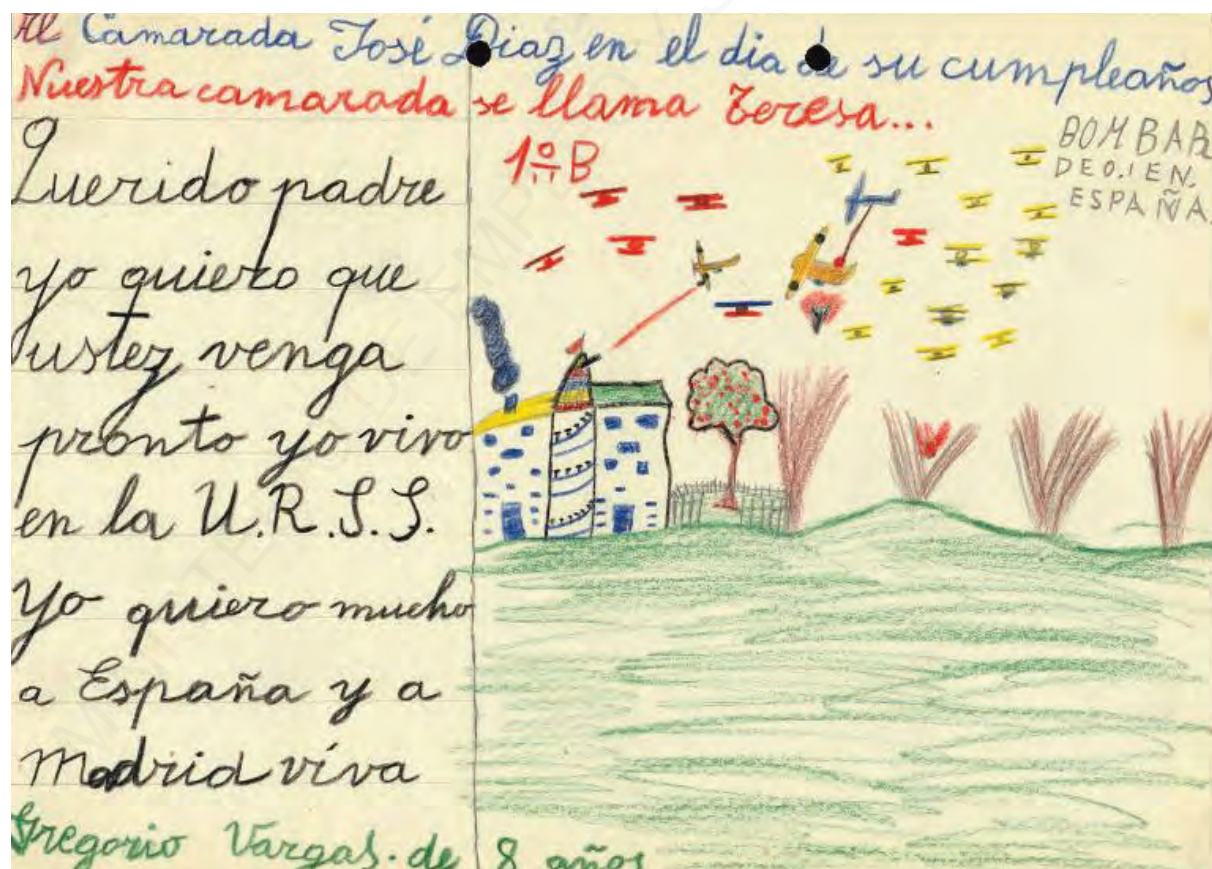 Al Camarada José Diaz en el dia de su cumpleaños
Nuestra camarada se llama Teresa...
Querido padre
yo quiero que
ustez venga
pronto yo vivo
en la U.R.S.S.
Yo quiero mucho
a España y a
Madrid víva
Gregorio Vargas. de 8 años
1º B
BOMBAR
DEO.IEN.
ESPAÑA.